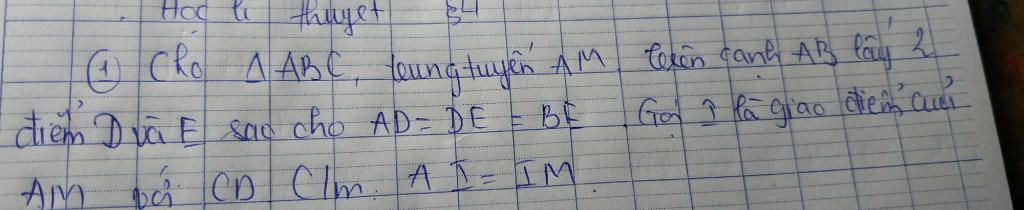 Học lí thuyết §4
① Cho Δ ABC, trung tuyến AM trên cạnh AB lấy 2
điểm D và E sao cho AD = DE = BE Gọi I là giao điểm của
AM và CD C/m. AI = IM.